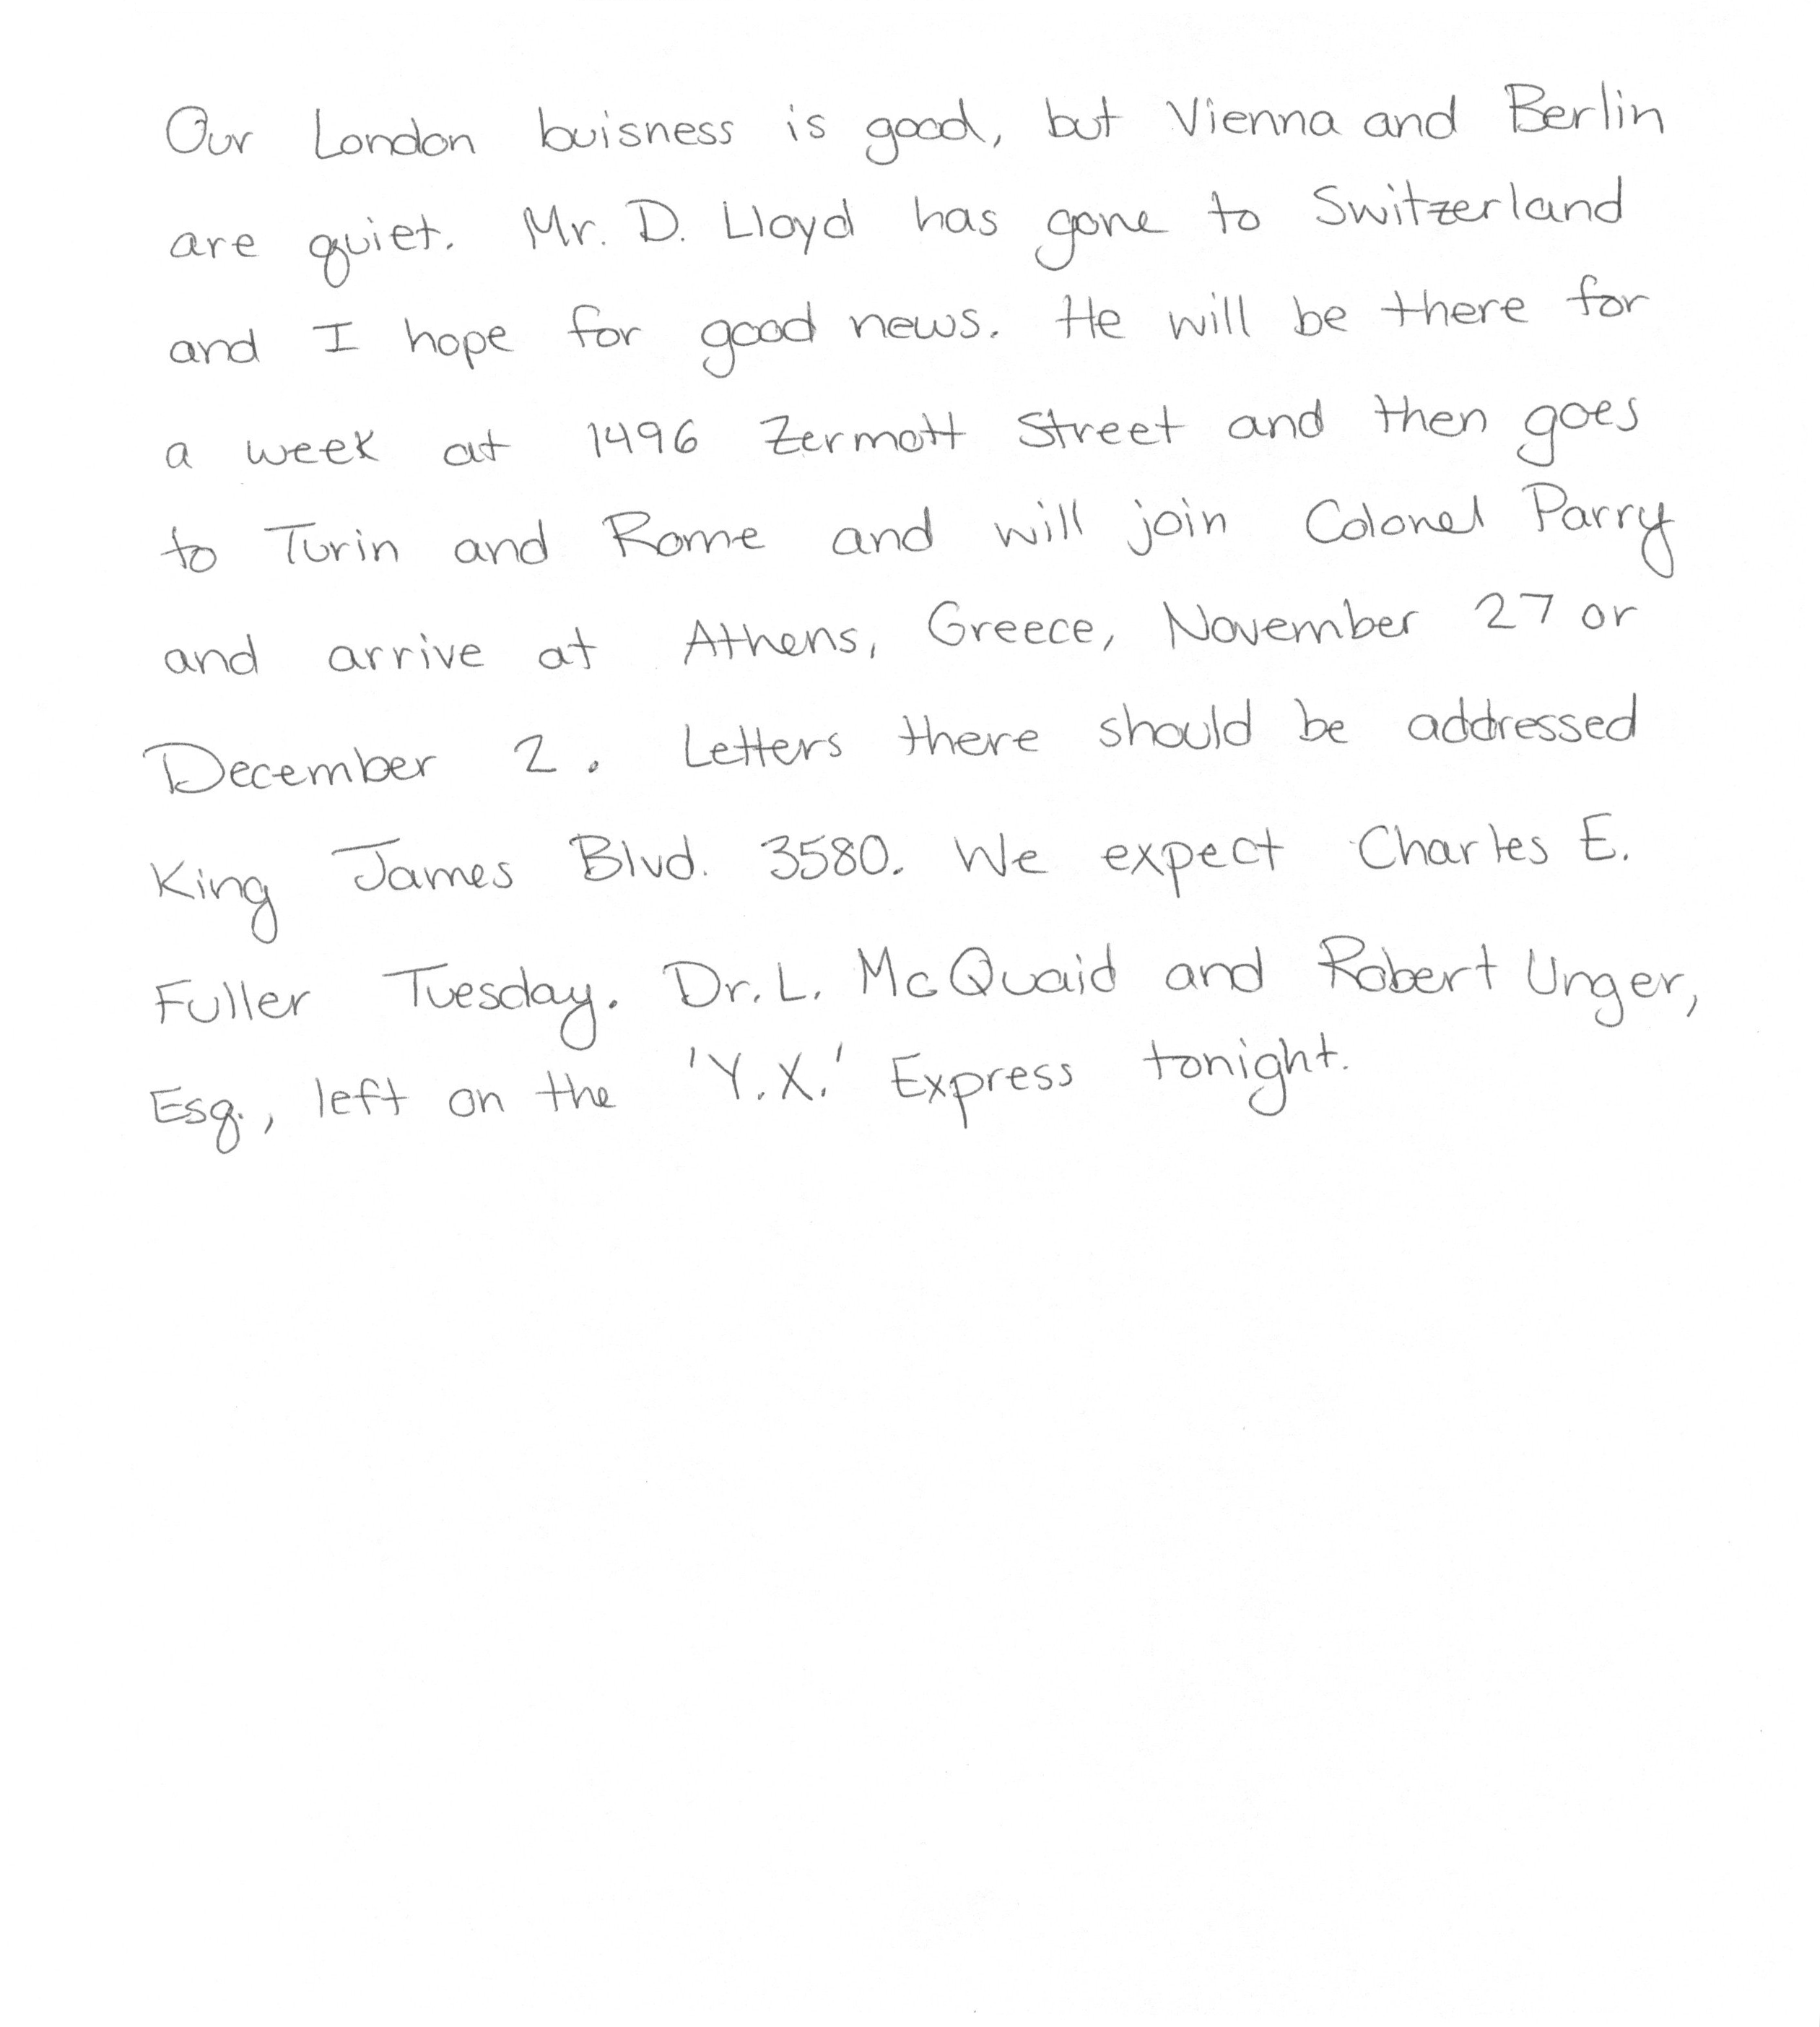 Our London buisness is good, but Vienna and Berlin
are quiet. Mr. D. Lloyd has gone to Switzerland
and I hope for good news. He will be there for
a week at 1496 Zermott Street and then goes
to Turin and Rome and will join Colonel Parry
and arrive at Athens, Greece, November 27 or
December 2. Letters there should be addressed
King James Blvd. 3580. We expect Charles E.
Fuller Tuesday. Dr. L. McQuaid and Robert Unger,
Esq., left on the 'Y.X.' Express tonight.